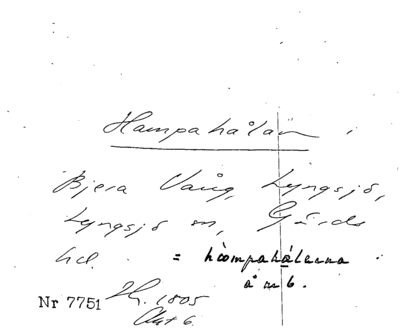 Hampahålan
Bjera Vång, Lyngsjö,
Lyngsjö sn, Gärds
hd. = hòompahálerna
å m 6.
Nr 7751 1805
Akt 6.